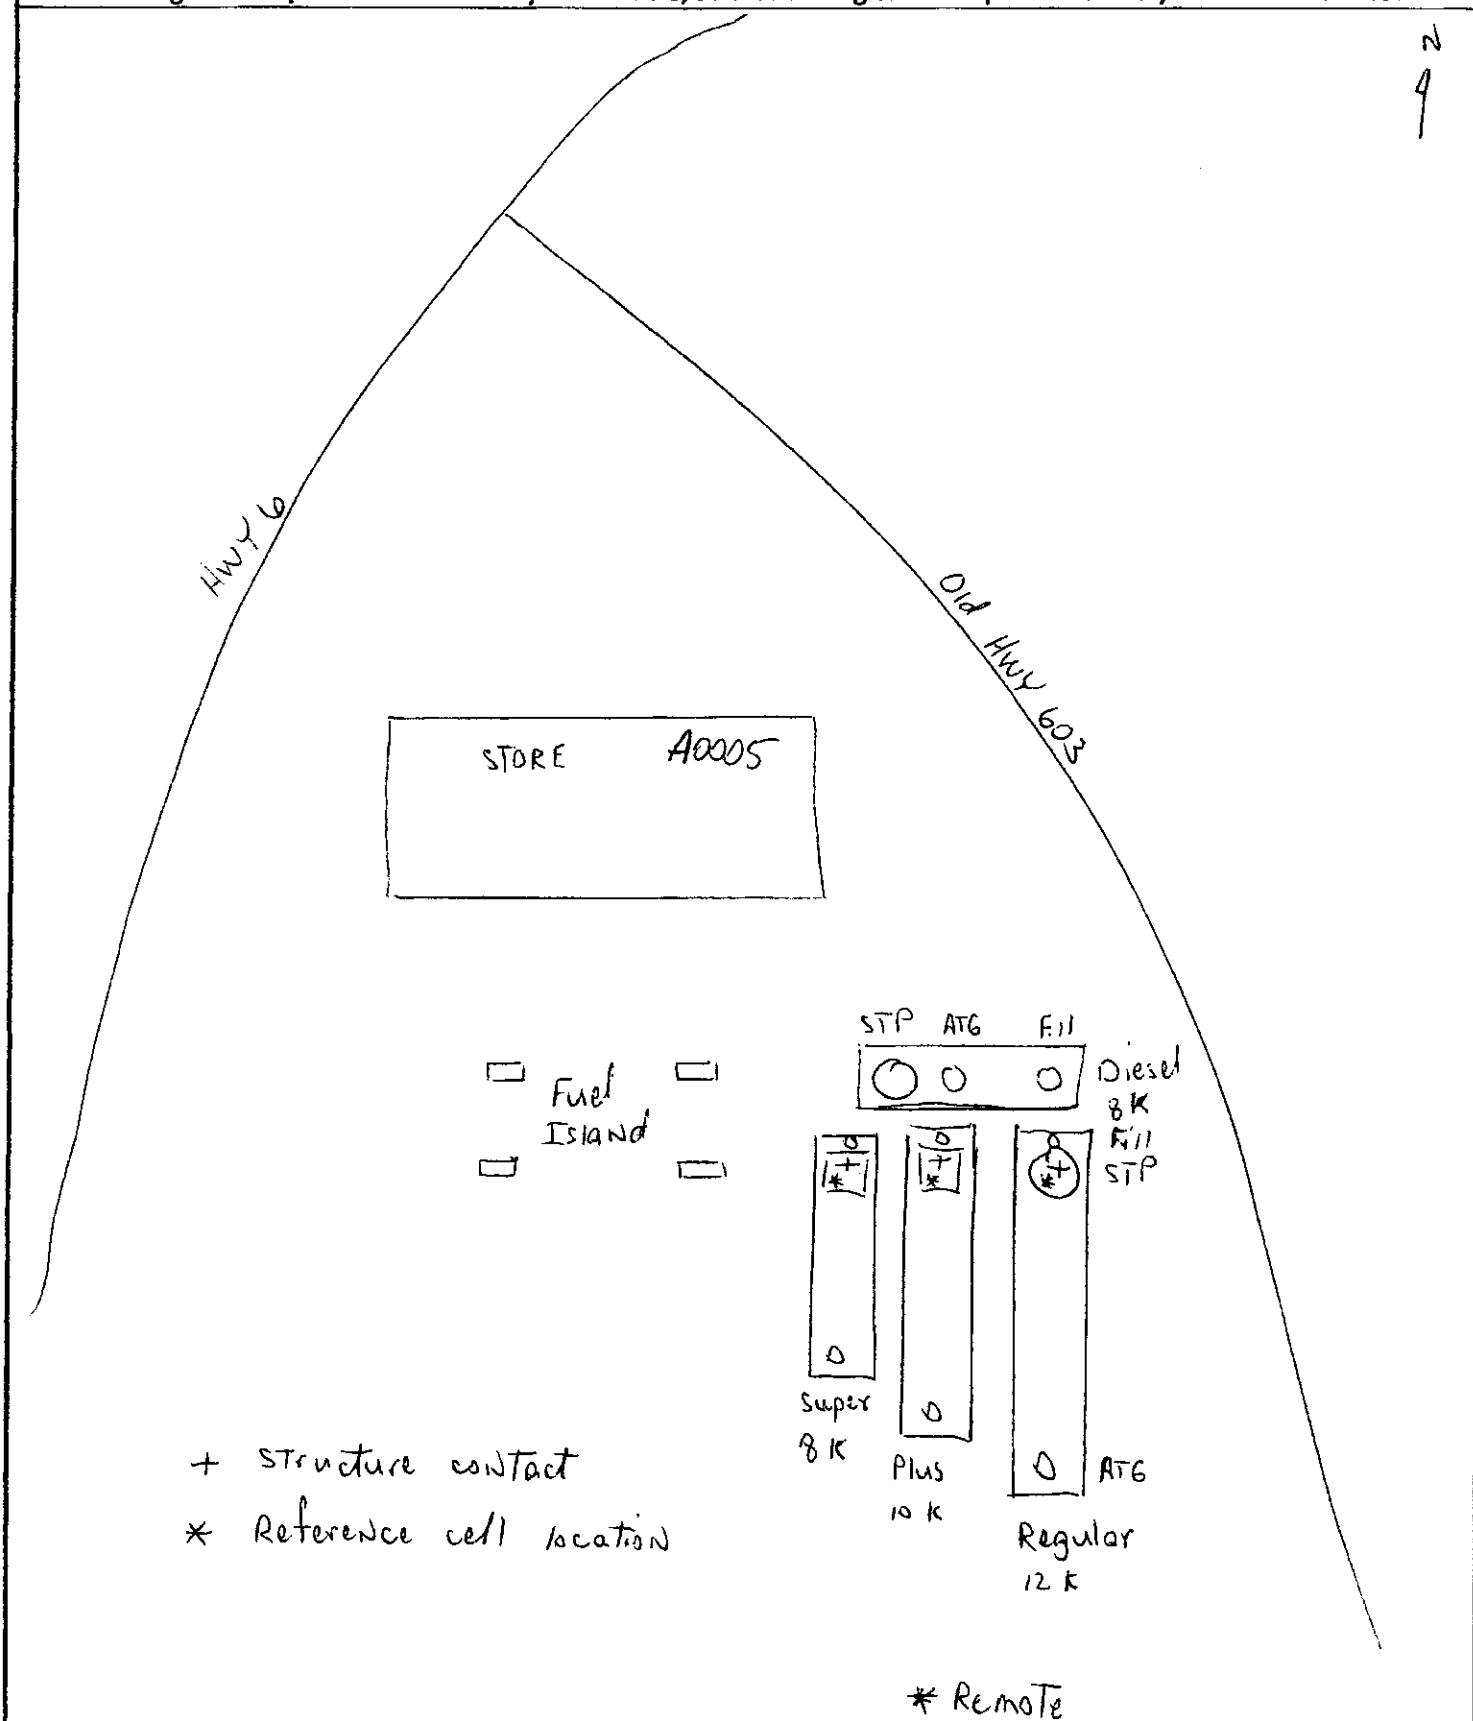 N
HWY 6
Old HWY 603
STORE A0005
STP ATG Fill
Diesel
8K
Fuel
Island
Fill
STP
Super
8K
Plus
10 K
ATG
Regular
12 K
+ Structure contact
* Reference cell location
* Remote